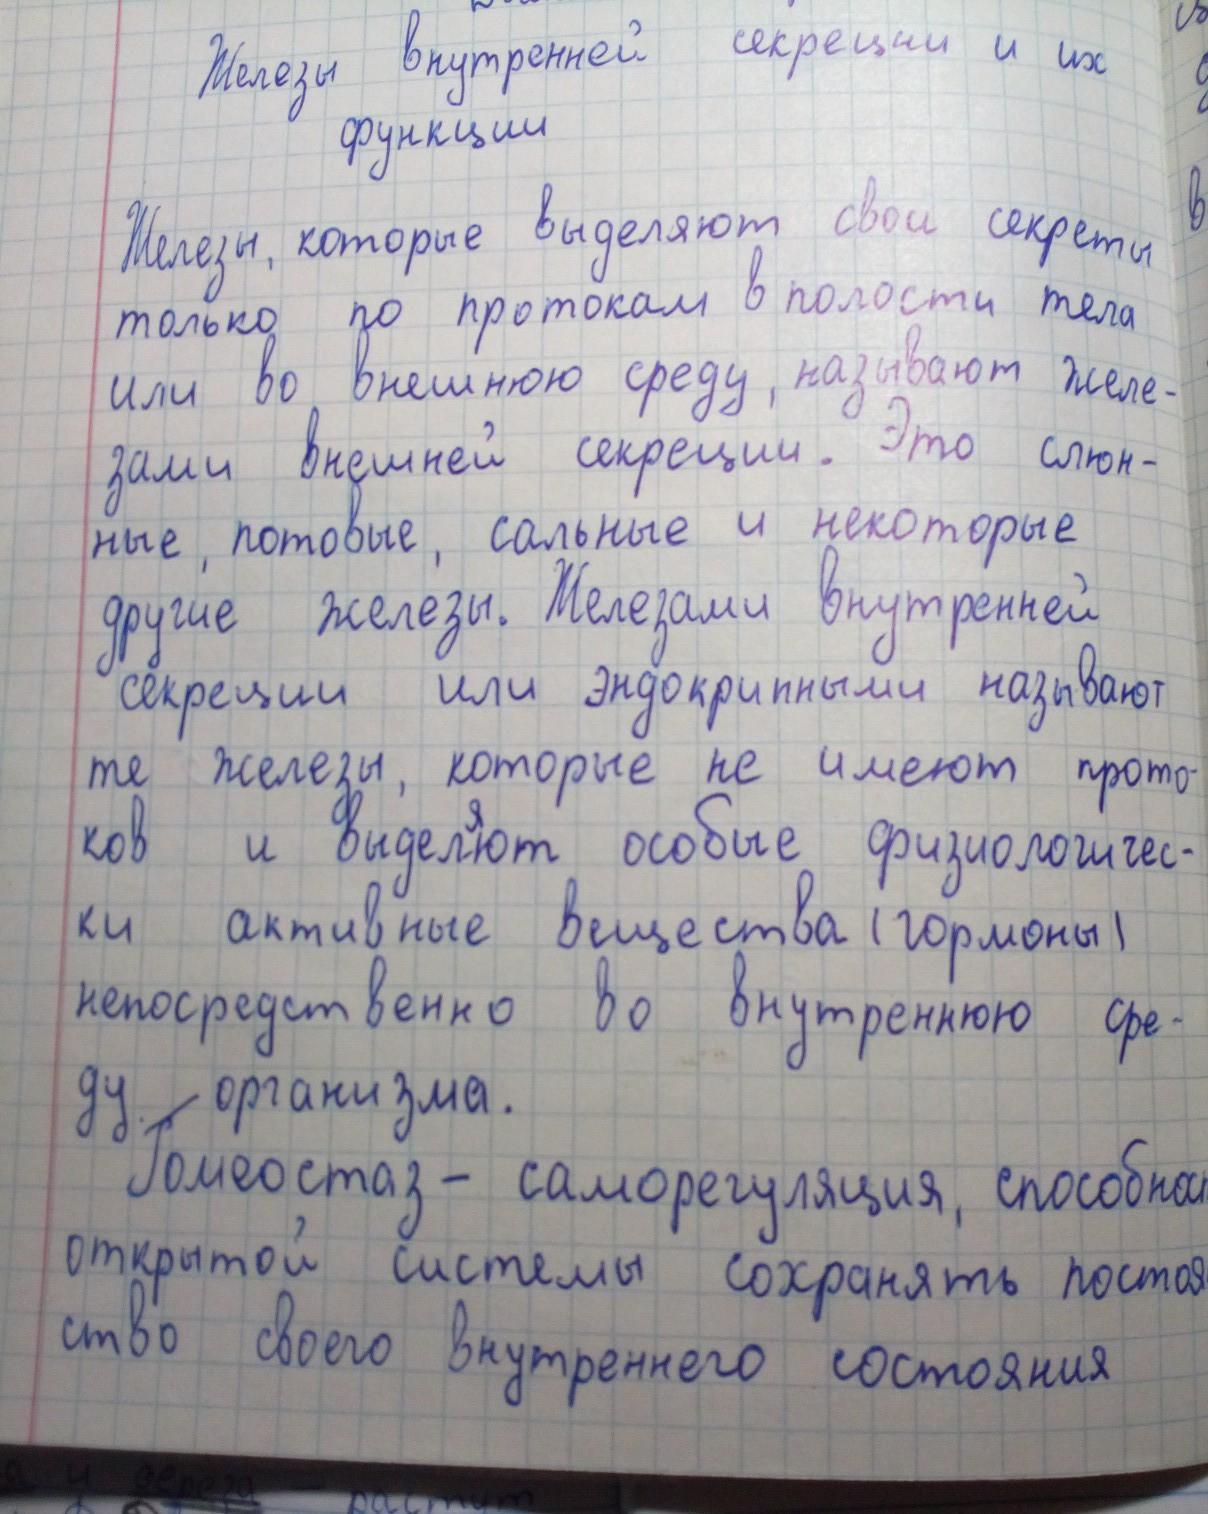 Железы внутренней секреции и их
функции
Железы, которые выделяют свои секреты
только по протокам в полости тела
или во внешнюю среду, называют желе-
зами внешней секреции. Это слюн-
ные, потовые, сальные и некоторые
другие железы. Железами внутренней
секреции или эндокринными называют
те железы, которые не имеют прото-
ков и выделяют особые физиологичес-
ки активные вещества (гормоны)
непосредственно во внутреннюю сре-
ду организма.
Гомеостаз - саморегуляция, способност
открытой системы сохранять постоя
ство своего внутреннего состояния
и растут